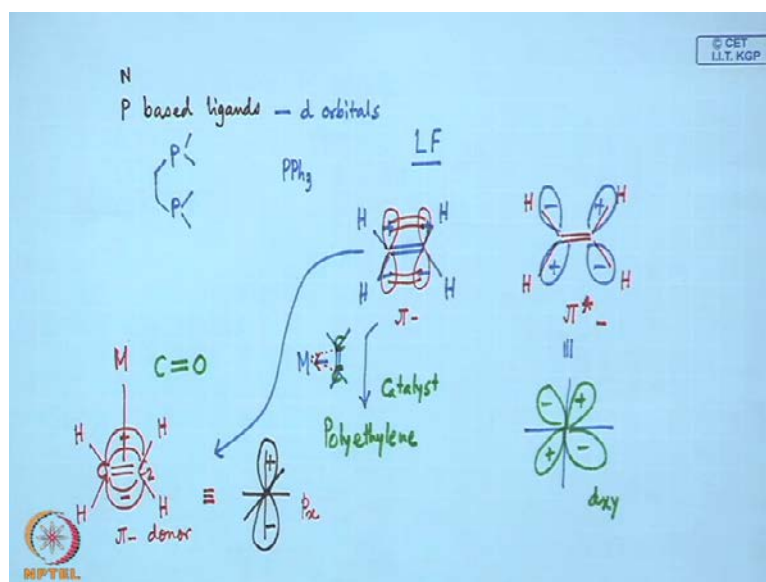 © CET
I.I.T. KGP
N
P based ligands - d orbitals
LF
P
P
PPh₃
H H
H H
π-
H H
H H
π*-
M C=O
M
C
C
Catalyst
Polyethylene
- +
+ -
dxy
H H
+
C=C
-
H H
π- donor
≡
+
-
Px
NPTEL